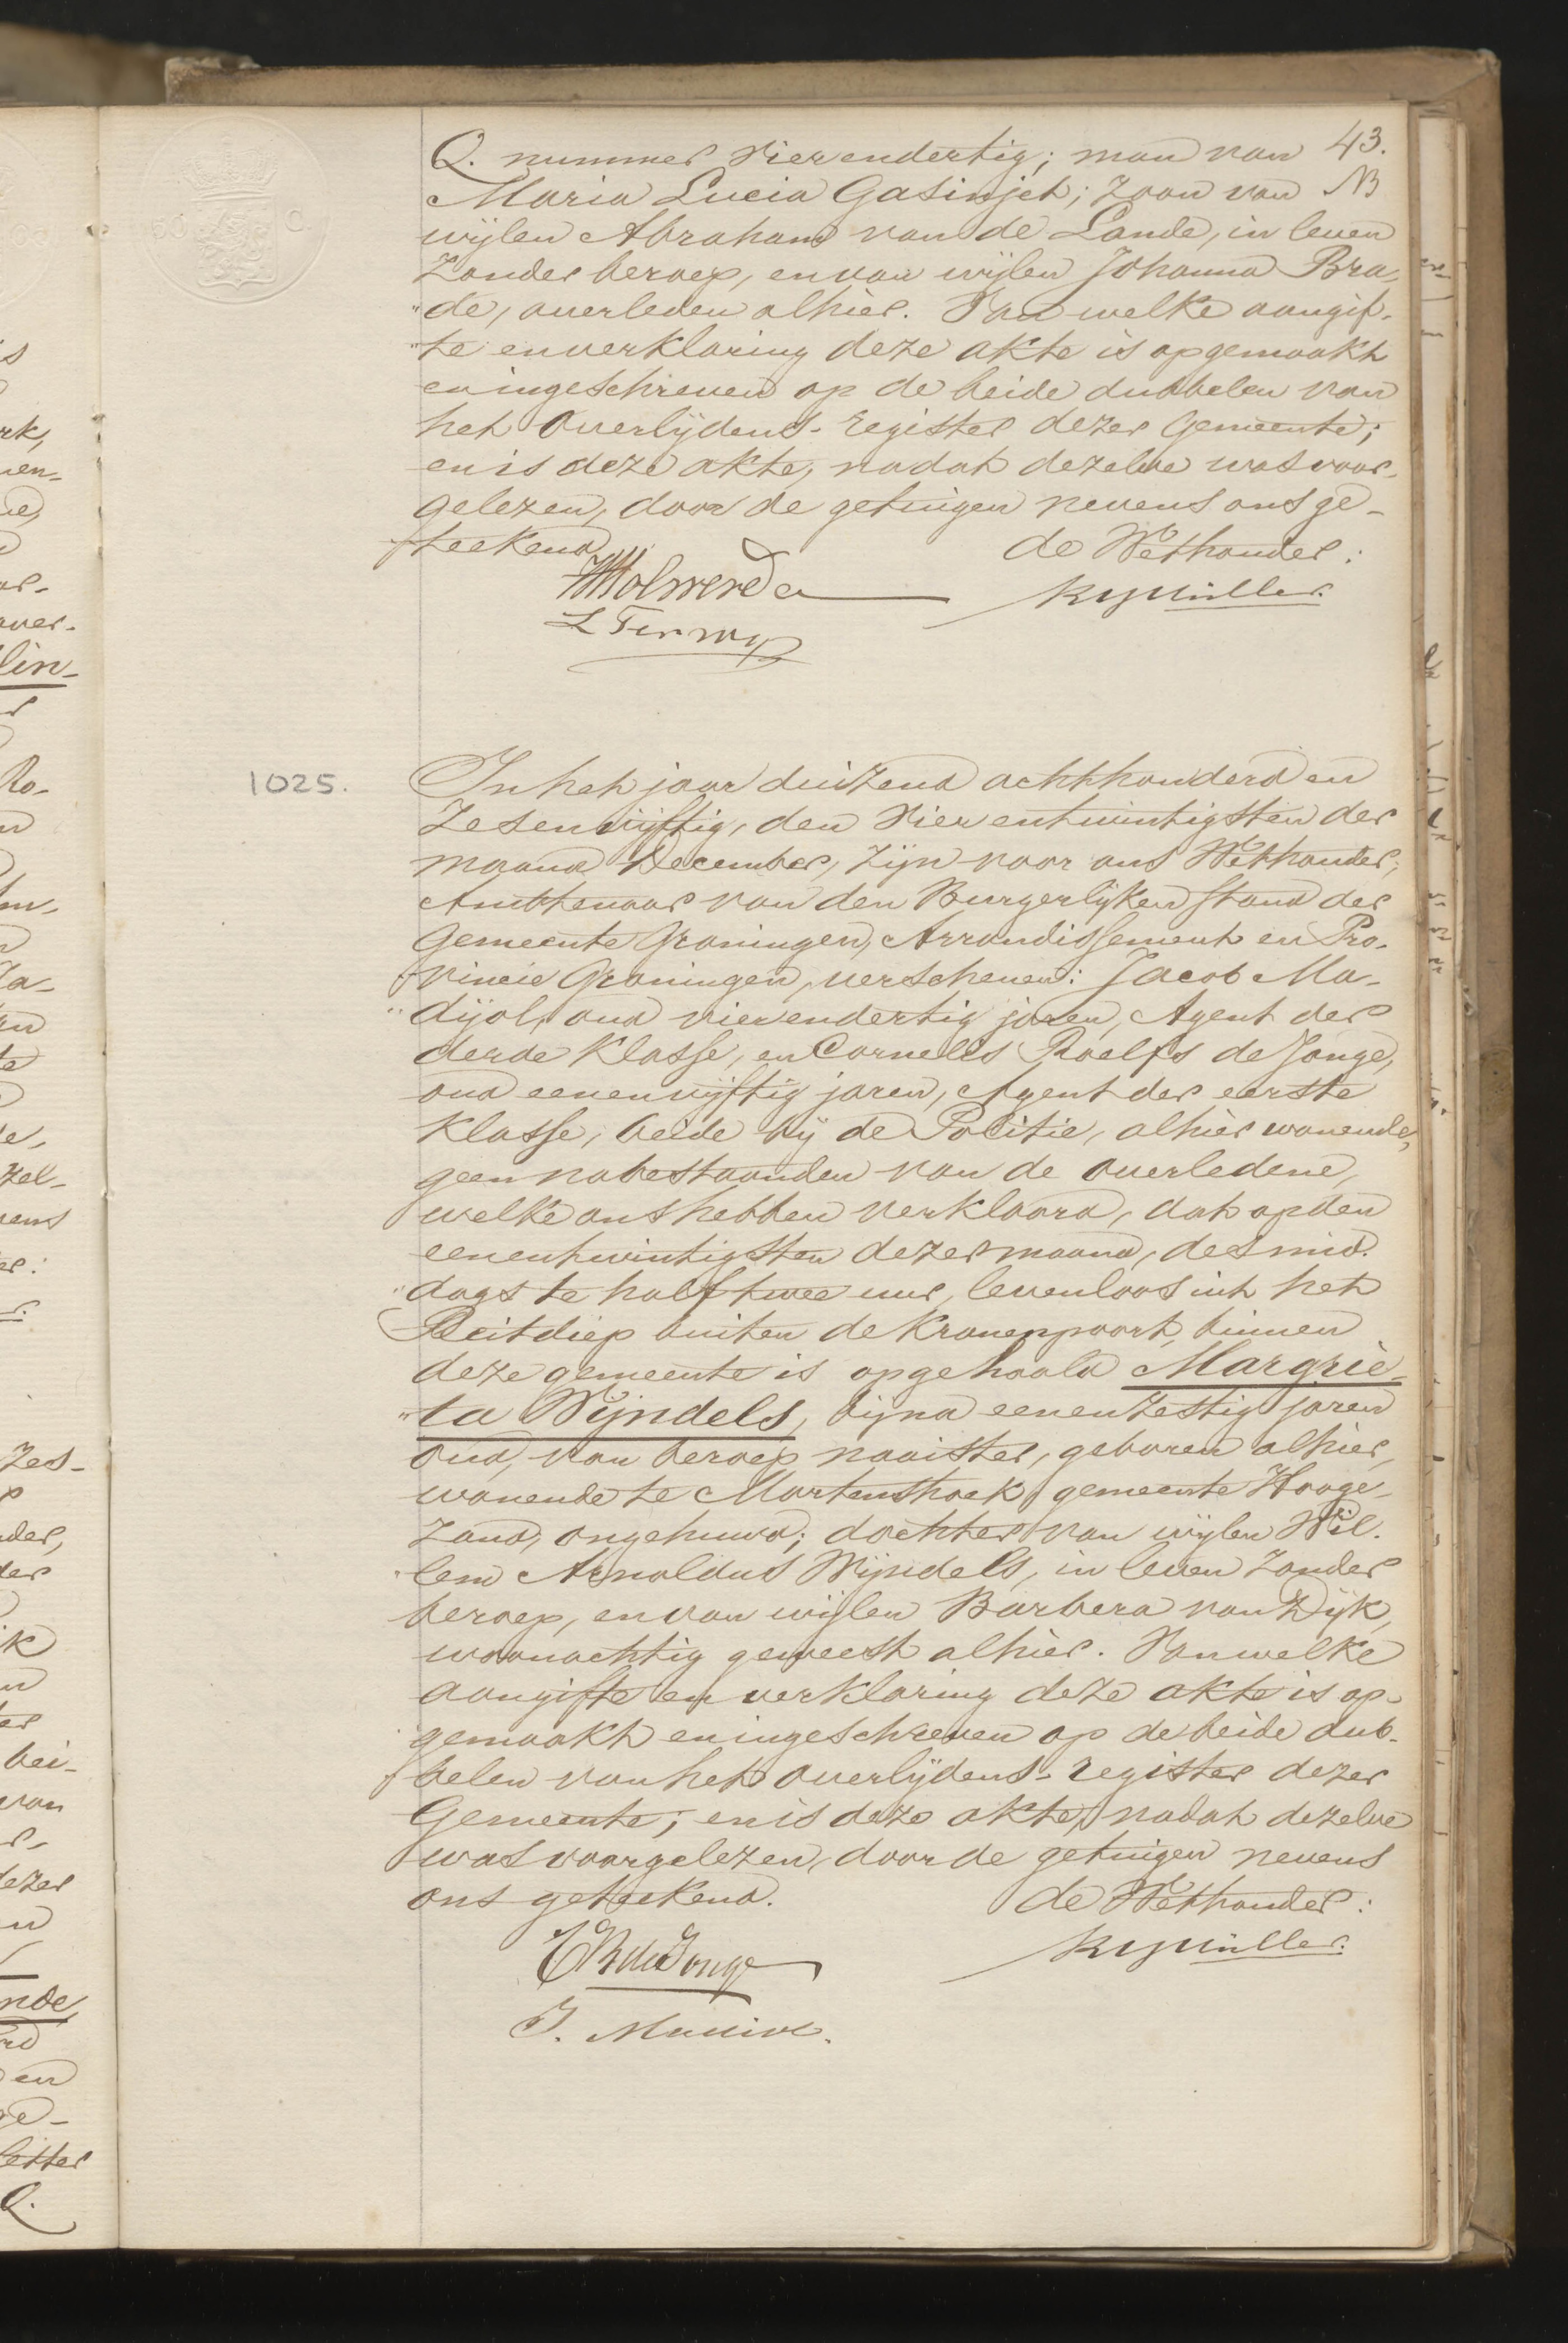 43.
NB
Q. nummer vierendertig; man van
Maria Lucia Gasinjet; zoon van
wijlen Abraham van de Lande, in leven
zonder beroep, en van wijlen Johanna Bra-
"de, overleden alhier. Van welke aangif-
"te en verklaring deze akte is opgemaakt
en ingeschreven op de beide dubbelen van
het overlijdens-register dezer Gemeente;
en is deze akte, nadat dezelve was voor-
gelezen, door de getuigen nevens ons ge-
teekend.
de Wethouder:
Wolwerda
RMüller.
L Ter
1025.
In het jaar duizend achthonderd en
zesenvijftig, den vierentwintigsten der
maand December, zijn voor ons Wethouder,
Ambtenaar van den Burgerlijken stand der
Gemeente Groningen, Arrondissement en Pro-
vincie Groningen, verschenen: Jacob Ma-
"dijol, oud vierendertig jaren, Agent der
derde klasse, en Cornelis Roelfs de Jonge,
oud eenenvijftig jaren, Agent der eerste
klasse, beide bij de Politie, alhier wonende,
geen nabestaanden van de overledene,
welke ons hebben verklaard, dat op den
eenentwintigsten dezer maand, des mid-
"dags te half twee uur, levenloos uit het
Reitdiep buiten de Kranenpoort, binnen
deze gemeente is opgehaald Margrie-
"ta Wijndels, bijna eenenzestig jaren
oud, van beroep naaister, geboren alhier,
wonende te Martenshoek, gemeente Hooge-
zand, ongehuwd; dochter van wijlen Wil-
"lem Arnoldus Wijndels, in leven zonder
beroep, en van wijlen Barbera van Dijk,
woonachtig geweest alhier. Van welke
aangifte en verklaring deze akte is op-
gemaakt en ingeschreven op de beide dub-
belen van het overlijdens-register dezer
Gemeente; en is deze akte, nadat dezelve
was voorgelezen, door de getuigen nevens
ons geteekend.
de Wethouder:
CR de Jonge
RMüller.
J.